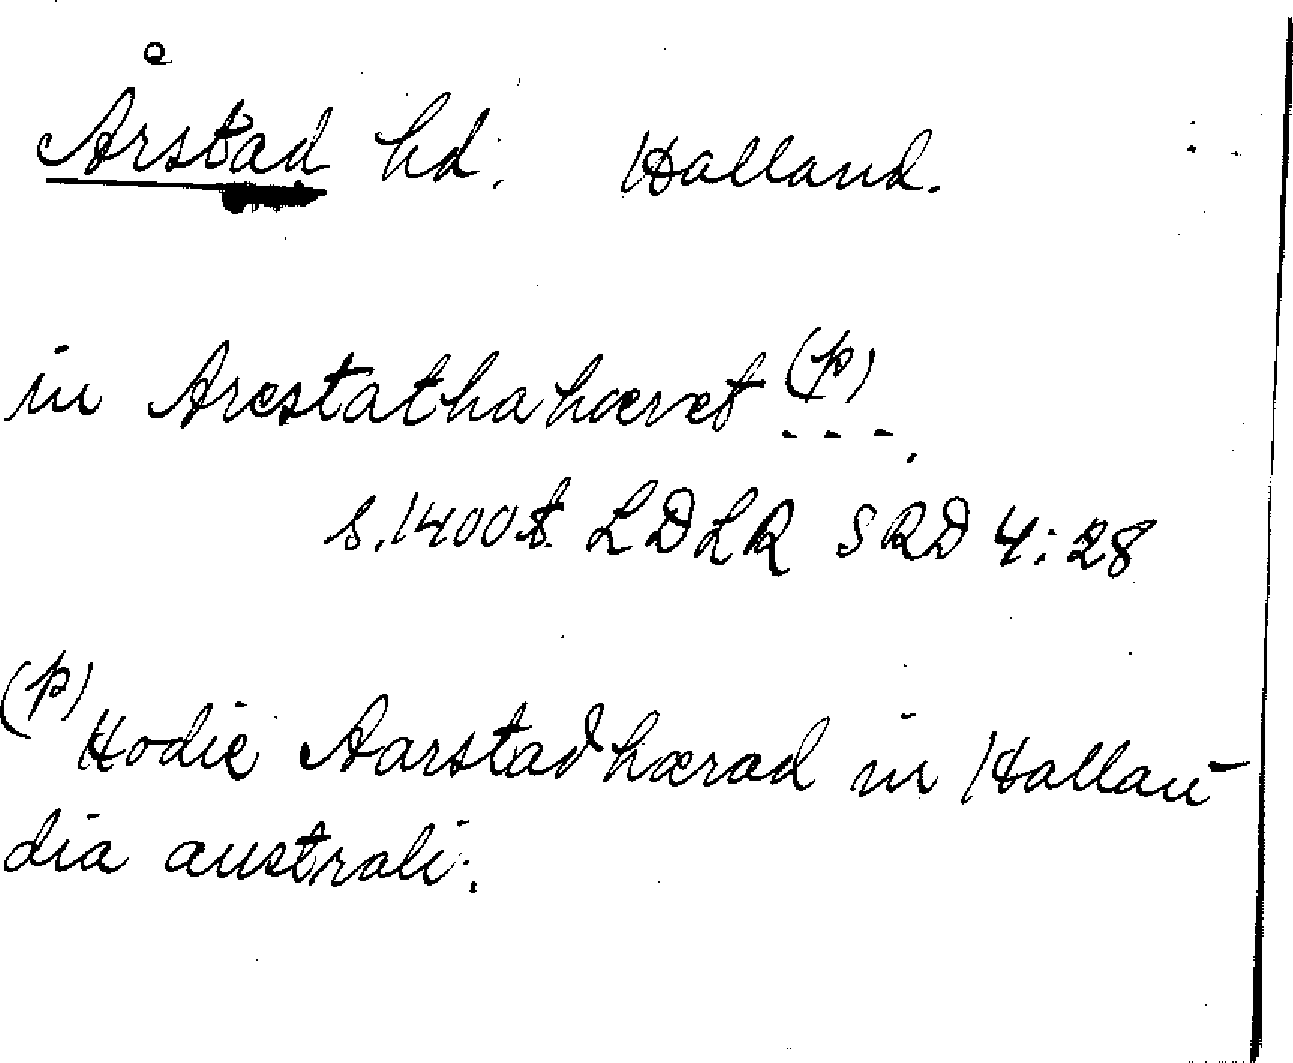 Årstad hd. Halland.
in Arestathahæret (p) - - - .
s. 1400 t. LDLR SRD 4:28
(p) Hodie Aarstadhærad in Hallan-
dia australi.